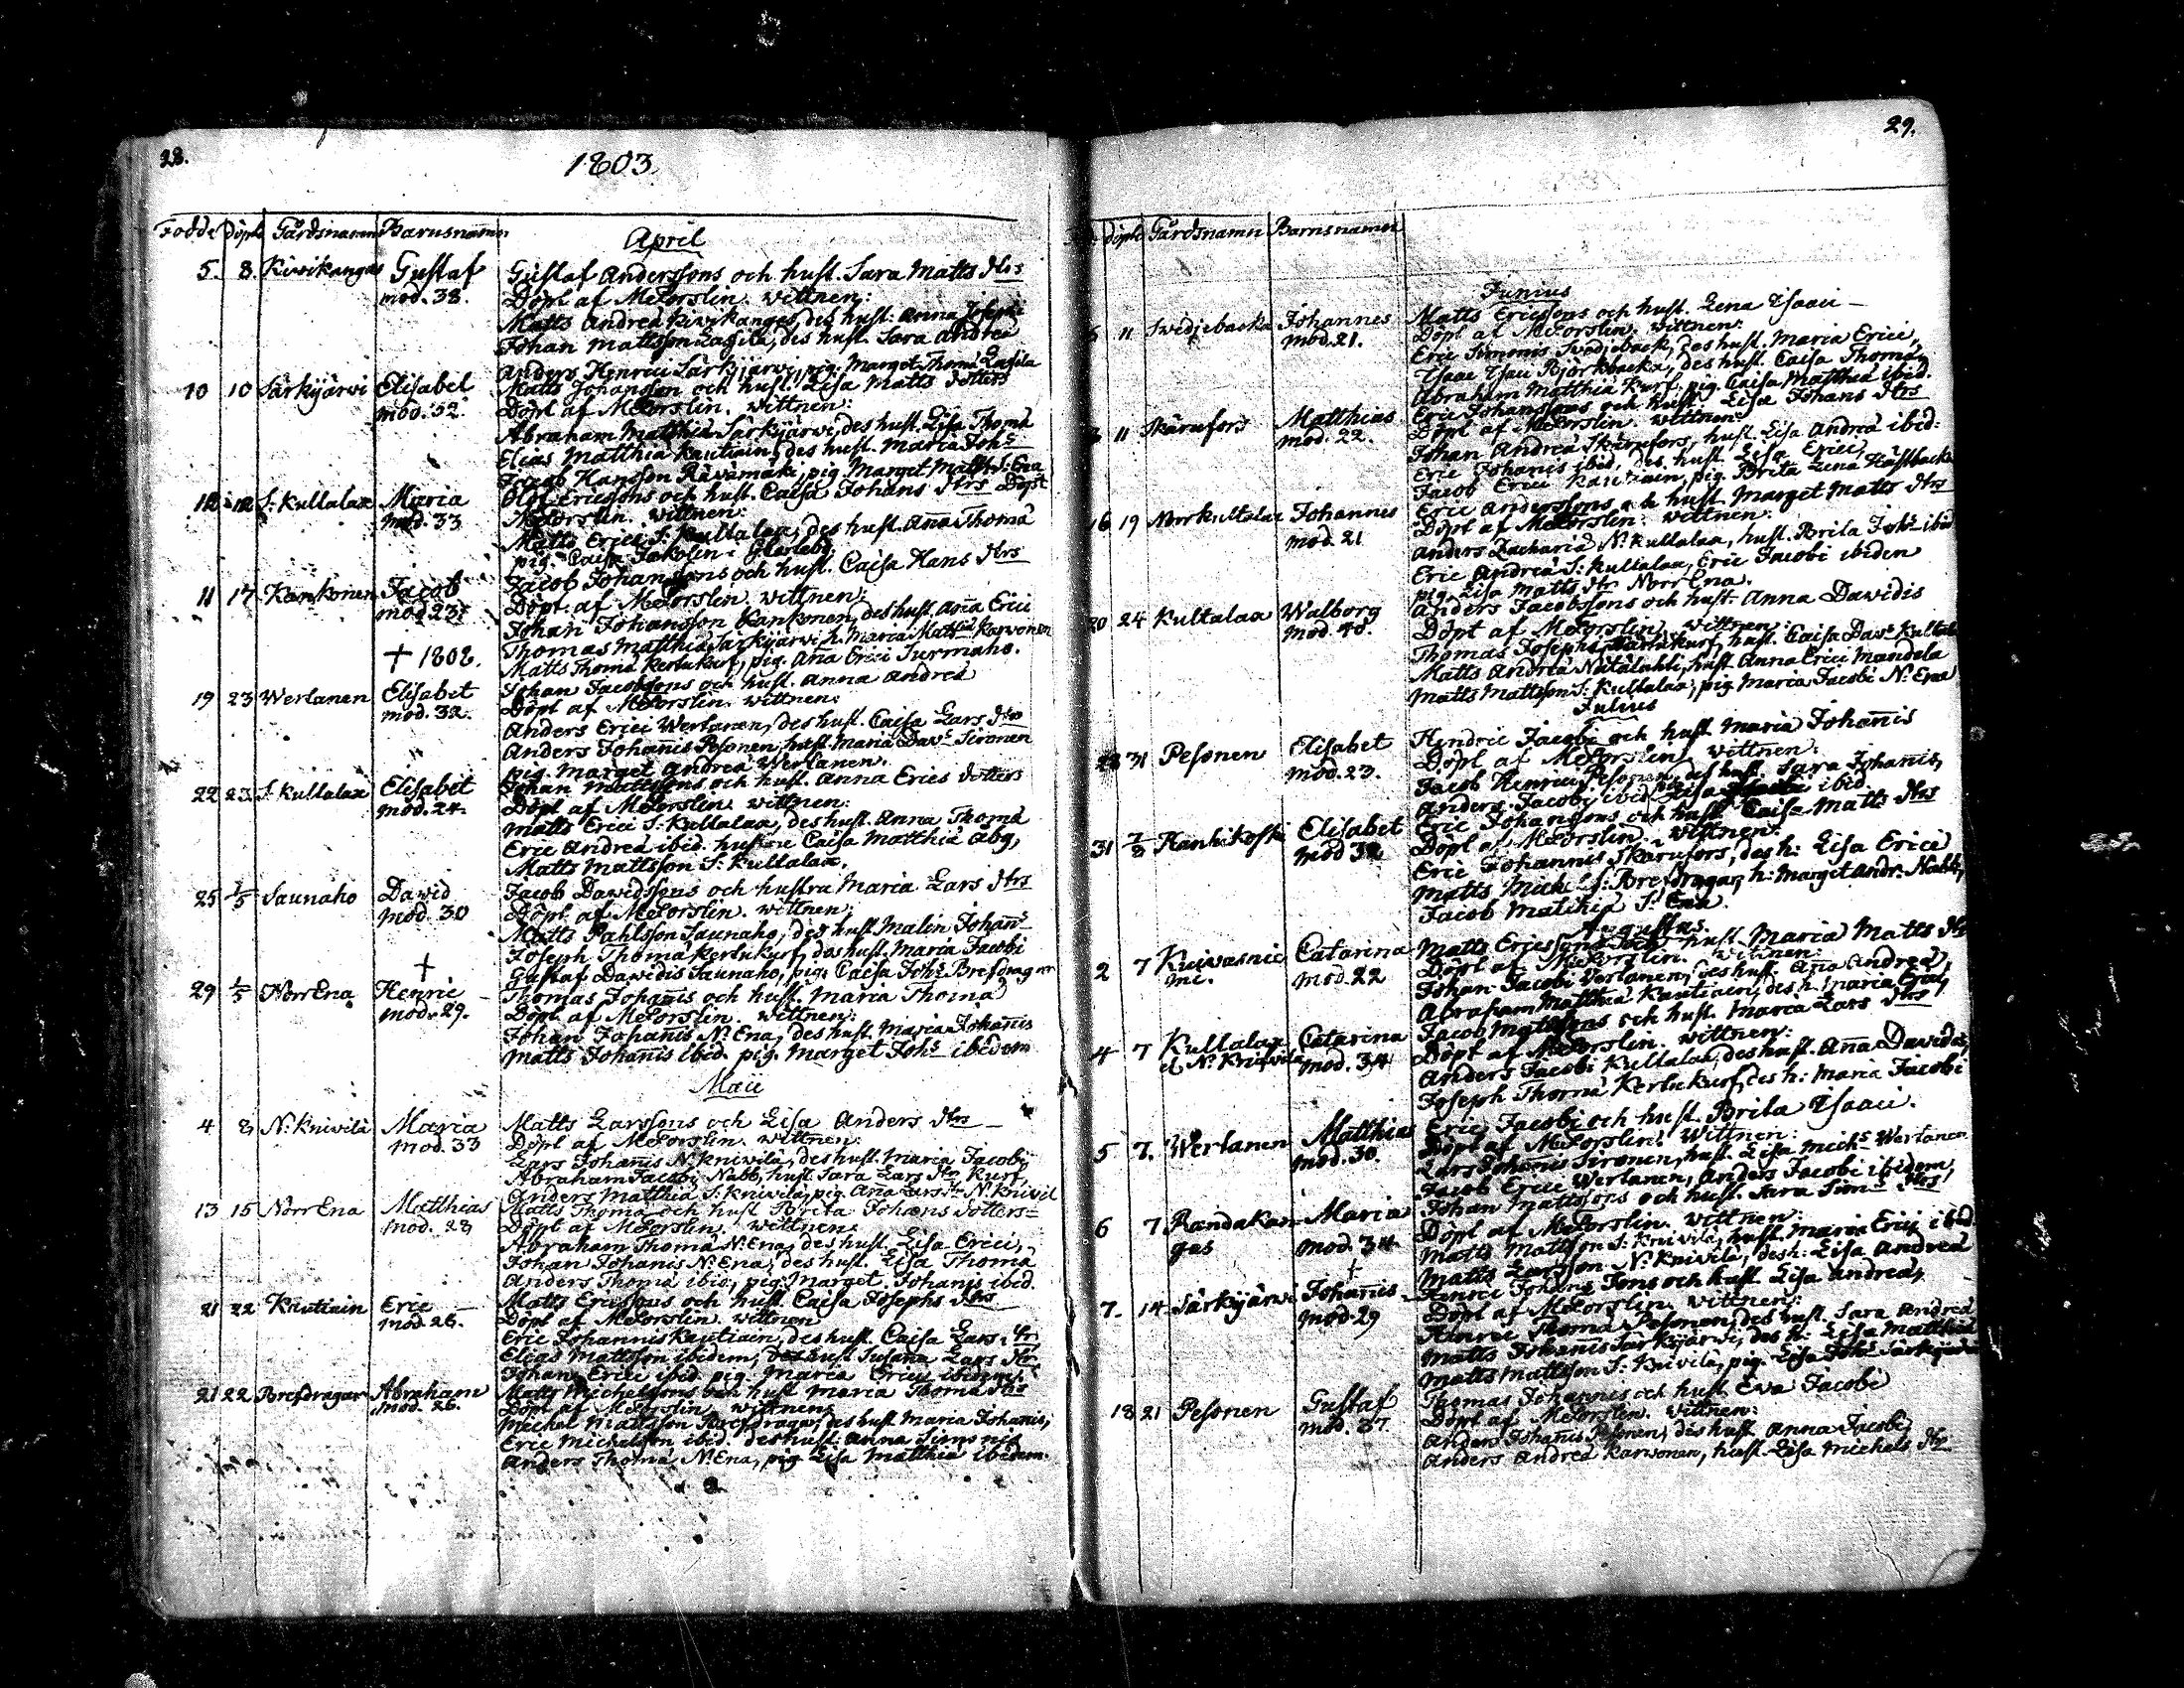 28.
1803
Födde Döpte Gårdsnamn Barnsnamn
April
5. 8. Kivikangas Gustaf Gustaf Anderssons och hust. Sara Matts dtrs
mod. 38. Döpt af McForslin. wittnen:
Matts Andreä Kivikangas, des hust: Anna Josephi
Johan Mattsson Lassila, des hust. Sara Andreä
Anders Henrici Särkijärwi, pig. Marget Thomä Lassila
10 10 Särkijärwi Elisabet Matts Johansson och hust. Lisa Matts dotters
mod. 32. Döpt af McForslin. wittnen:
Abraham Matthiä Särkijärwi, des hust. Lisa Thomä
Elias Matthiä Kautiain, des hust. Maria Johs
Jacob Hansson Räwämäki, pig. Marget Matts S: Ena
12 12 S. Kullalax Maria Olof Ericssons och hust. Caisa Johans dtrs Döpt
mod. 33 McForslin. wittnen:
Matts Erici S: Kullalax, des hust. Anna Thomä
pig. Caisa Jakolin i Gbarleby.
11 17 Kankonen Jacob Jacob Johanssons och hust. Caisa Hans dtrs
mod 23. Döpt af McForslin. wittnen:
Johan Johansson Kankonen, des hust. Anna Erici
† 1802. Thomas Matthiä Särkijärwi h. Maria Matthiä Karvonen
Matts Thomä Kertukurf, pig. Anna Erici Surmaho.
19 23 Wertanen Elisabet Johan Jacobssons och hust. Anna Andreä
mod. 32. Döpt af McForslin. wittnen:
Anders Erici Wertanen, des hust. Caisa Lars dtr
Anders Johannis Pesonen, hust. Maria Davs Sironen
pig. Marget Andreä Wertanen.
22 23 S. Kullalax Elisabet Johan Mattssons och hust. Anna Erics dotters
mod. 24. Döpt af McForslin. wittnen:
Matts Erici S: Kullalax, des hust. Anna Thomä
Eric Andreä ibid. hustru Caisa Matthiä abg,
Matts Mattsson S: Kullalax.
25 1/5 Saunaho Dawid Jacob Dawidssons och hustru Maria Lars dtrs
mod. 30 Döpt af McForslin. wittnen:
Matts Påhlsson Saunaho, des hust. Malin Johans
Joseph Thomä Kertukurf, des hust. Maria Jacobi
† Gustaf Dawidis Saunaho, pig. Caisa Johs Brefdragar
29 1/5 NorrEna Henric Thomas Johannis och hust. Maria Thomä
mod. 29. Döpt af McForslin. wittnen:
Johan Johannis N: Ena, des hust. Maria Johannis
Matts Johannis ibid. pig. Marget Johs ibidem
Maii
4 8 N: Knivilä Maria Matts Larssons och Lisa Anders dtrs
mod. 33 Döpt af McForslin. wittnen:
Lars Johannis N: Knivilä, des hust. Maria Jacobi
Abraham Jacobi Nabb, hust. Sara Lars dtr Kurf,
Anders Matthiä S: Knivilä, pig. Anna Lars dtr N: Knivil
13 15 NorrEna Matthias Matts Thomä och hust. Brita Johans dotters
mod. 28 Döpt af McForslin. wittnen:
Abraham Thomä N: Ena, des hust. Lisa Erici,
Johan Johannis N: Ena, des hust. Lisa Thomä
Anders Thomä ibid, pig. Marget Johannis ibid.
21 22 Kautiain Eric Matts Ericssons och hust. Caisa Josephs dtrs
mod. 26. Döpt af McForslin. wittnen
Eric Johannis Kautiain, des hust. Caisa Lars dtr
Elias Mattsson ibidem, hust Susanna Lars dtr
Johan Erici ibid. pig. Maria Erici ibidem.
21 22 Brefdragar Abraham Matts Michelssons och hust Maria Thomä dtrs
mod. 26. Döpt af McForslin. wittnen:
Michel Mattsson Brefdragar, des hust Maria Johannis,
Eric Michelsson ibid. des hust: Anna Simonis
Anders Thomä N: Ena, pig. Lisa Matthiä ibidem.
29.
Döpte Gårdsnamn Barnsnamn
Junius
11 Swedjebacka Johannes Matts Ericssons och hust. Lena Isaaci
mod. 21. Döpt af McForslin. wittnen:
Eric Simonis Swedjeback, des hust. Maria Erici,
Isaac Isaci Björkbacka, des hust. Caisa Thomä,
Abraham Matthiä Kurf, pig. Caisa Matthiä ibid.
11 Skärufors Matthias Eric Johanssons och hust. Lisa Johans dtrs
mod. 22. Döpt af McForslin. wittnen:
Johan Andreä Skärufors, hust. Lisa Andreä ibid:
Eric Johannis ibid, des hust. Lisa Erici,
Jacob Erici Kautiain, pig. Brita Lena Hästbacka
16 19 Norrkullalax Johannes Eric Anderssons och hust. Marget Matts dtrs
mod. 21 Döpt af McForslin. wittnen:
Anders Zachariä N: Kullalax, hust. Brita Johs ibid
Eric Andreä S: Kullalax, Eric Jacobi ibidem
pig. Lisa Matts dtr NorrEna.
20 24 Kullalax Walborg Anders Jacobssons och hust. Anna Dawidis
mod. 40. Döpt af McForslin. wittnen:
Thomas Josephi Kertukurf, hust. Caisa Davs Kullal
Matts Andreä Nätälahti, hust. Anna Erici Mandela
Matts Mattsson S: Kullalax, pig. Maria Jacobi N: Ena
Julius
28 31 Pesonen Elisabet Hendric Jacobi och hust Maria Johannis
mod. 23. Döpt af McForslin. wittnen:
Jacob Henrici Pesonen, des hust. Sara Johannis,
Anders Jacobi ibid, Lisa ibid.
31 7/8 Hanhikoski Elisabet Eric Johanssons och hust Caisa Matts dtrs
mod 32 Döpt af McForslin. wittnen:
Eric Johannis Skärufors, des h: Lisa Erici
Matts Michels: Brefdragar, h: Marget Andr. Nabb,
Jacob Matthiä S: Ena.
Augustus
2 7 Kuivasnie Catarina Matts Ericssons och hust Maria Matts dtr
mi. mod. 22 Döpt af McForslin. wittnen:
Johan Jacobi Vertanen, des hust. Anna Andreä,
Abraham Matthiä Kautiain, des h: Maria Esai,
4 7 Kullalax Catarina Jacob Matssons och hust Maria Lars dtrs
el N: Knivila mod. 34 Döpt af McForslin. wittnen:
Anders Jacobi Kullalax, des hust. Anna Davidis,
Joseph Thomä Kertukurf, des h: Maria Jacobi
5 7. Wertanen Matthias Eric Jacobi och hust Brita Isaaci.
mod. 30. Döpt af McForslin. Wittnen:
Lars Johannis Sironen, hust. Lisa Michs Wertanen
Jacob Erici Wertanen, Anders Jacobi ibidem,
6 7 Randakan- Maria Johan Mattssons och hust. Sara Sims dtrs
gas mod. 34 Döpt af McForslin. wittnen:
Matts Mattsson S: Knivila, hust. Maria Erici ibid.
† Matts Larsson N: Knivilä, des h: Lisa Andreä
7. 14 Särkijärwi Johannis Henric Johans Sons och hust Lisa Andreä,
mod. 29 Döpt af McForslin. wittnen:
Henric Thomä Pesonen, des hust. Sara Andreä
Matts Johannis Särkijärwi, des h: Lisa Matthiä
Matts Mattsson S: Knivilä, pig. Lisa Johs Särkijärwi
18 21 Pesonen Gustaf Thomas Johannis och hust Eva Jacobi
mod. 37. Döpt af McForslin. wittnen:
Anders Johannis Pesonen, des hust Anna Jacobi,
Anders Andreä Karvonen, hust. Lisa Michels dtr